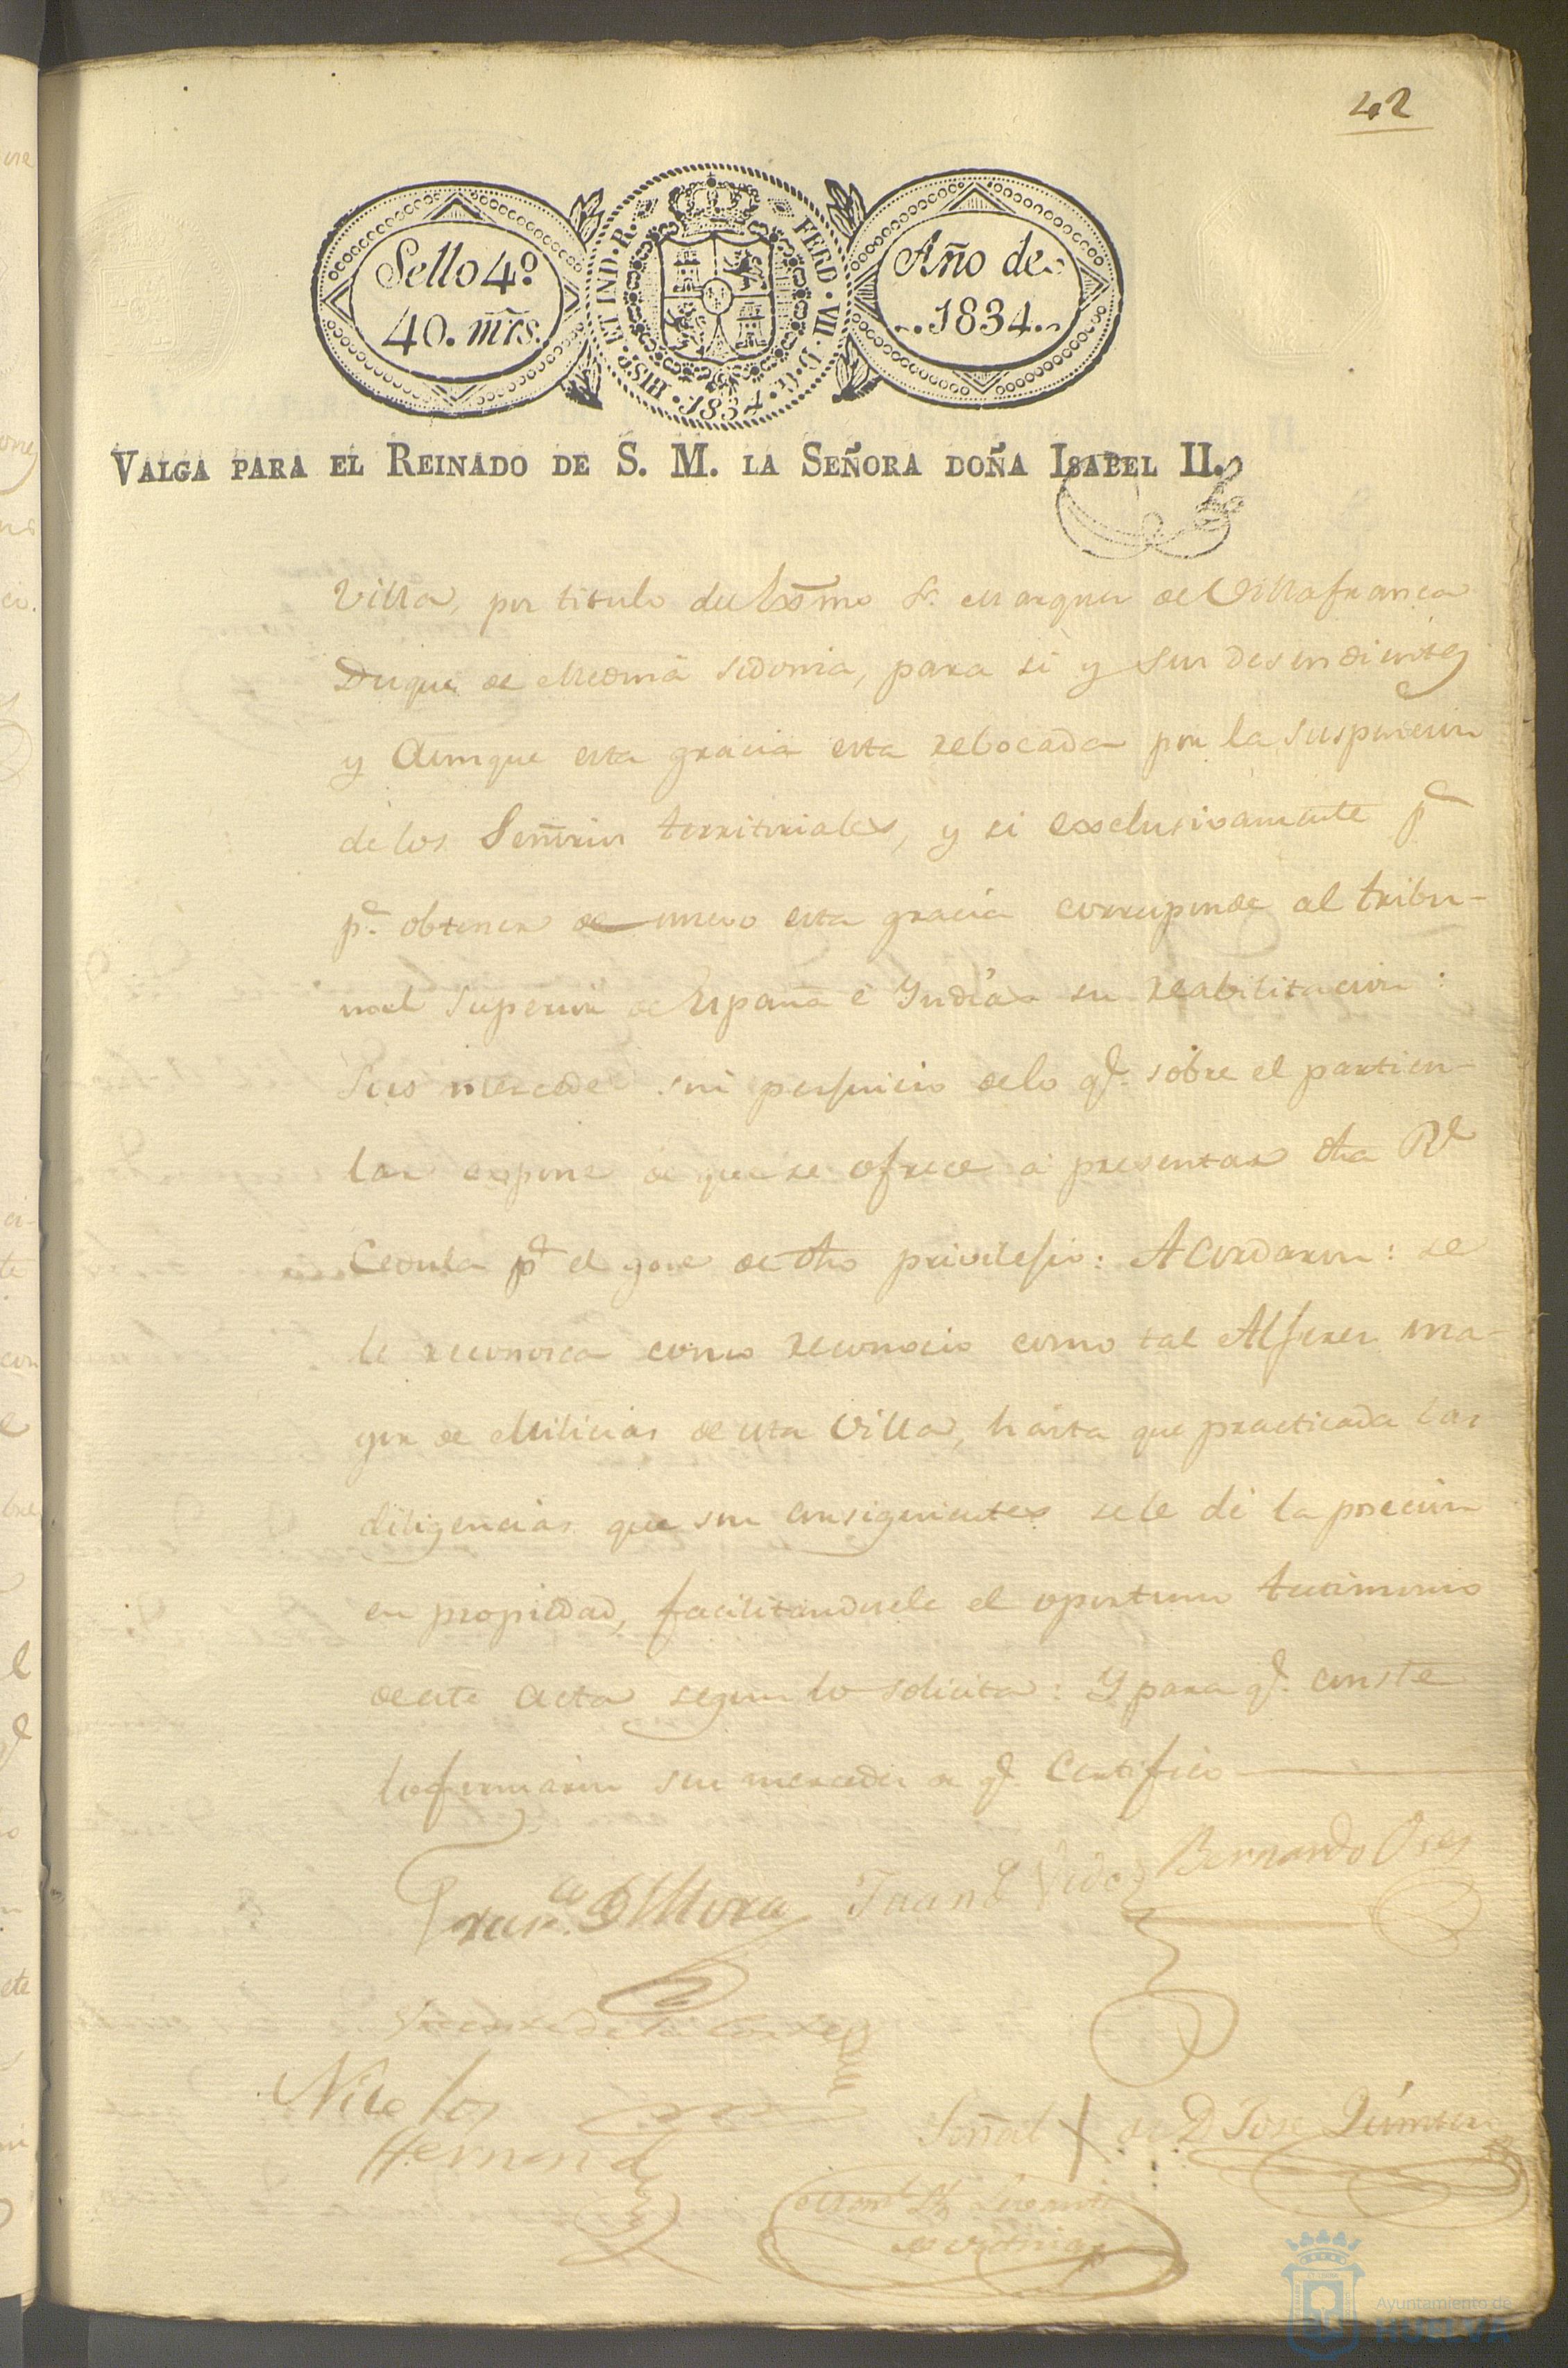 42
Sello 4º
40. mrs.
HISP. ET IND. R. FERD. VII. D. G. 1834.
Año de
1834.
VALGA PARA EL REINADO DE S. M. LA SEÑORA DOÑA ISABEL II.
Villa, por titulo del Exmo Sr. Marques de Villafranca
Duque de Medina Sidonia, para si y sus desendientes
y Aunque esta gracia esta rebocada por la suspencion
de los Señorios territoriales, y si exclusivamente pª
pª. obtener de nuevo esta gracia corresponde al tribu-
nal Superior de España é Yndias su reabilitacion:
Sus mercedes sin perjuicio de lo qe. sobre el particu-
lar expone de que se ofrece a presentar dha Rl
Cedula pª el gose de dho privilejio: Acordaron: se
le reconosca como reconocio como tal Alferes ma-
yor de Milicias de esta Villa, hasta que practicada las
diligencias que son consiguientes se le dé la posecion
en propiedad, facilitandosele el oportuno testimonio
de esta Acta segun lo solicita: Y para qe. conste
lo firmaron sus mercedes de qe. Certifico
Franco. de Mora
Juan
Bernardo
Vicente de la Corte
Nicolas
Hernand
Señal X de D. Jose Quintero
Ayuntamiento de
HUELVA